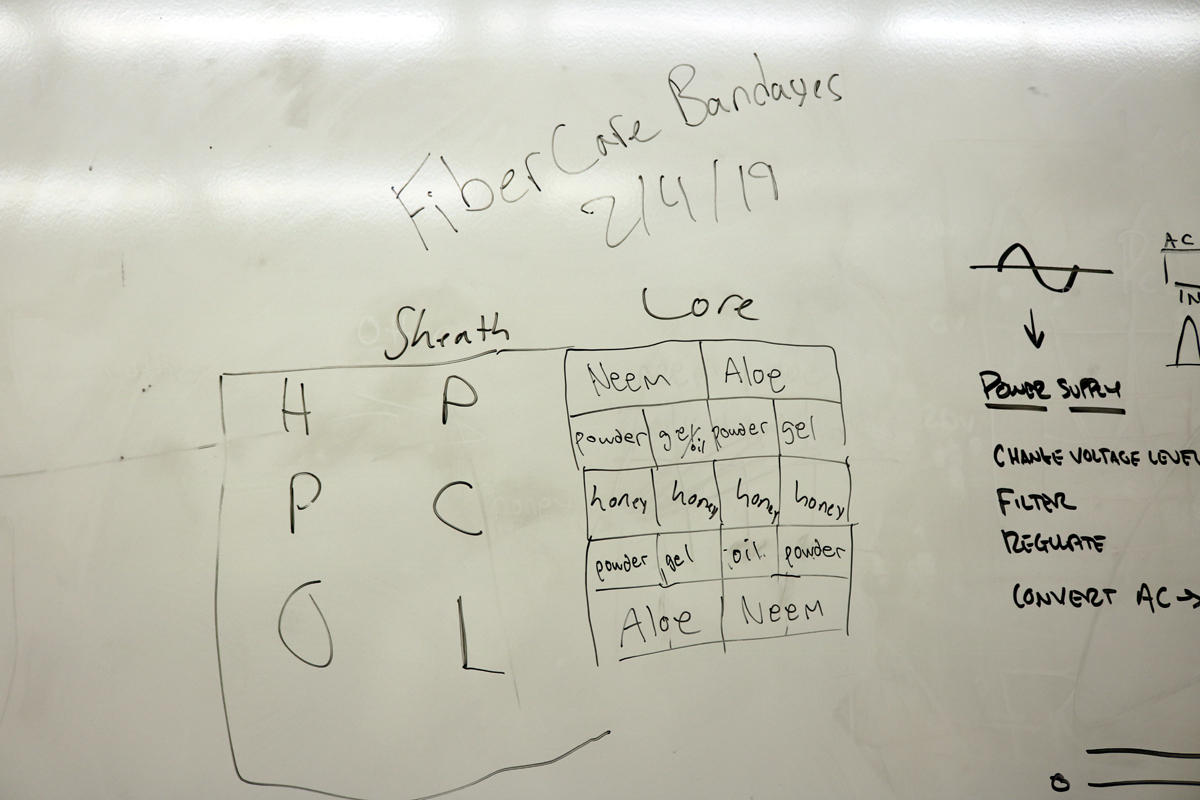 FiberCare Bandages
2/4/19
Sheath
Core
H P
P C
O L
Neem Aloe
powder gel/oil powder gel
honey honey honey honey
powder gel oil powder
Aloe Neem
AC
IN
POWER SUPPLY
CHANGE VOLTAGE LEVEL
FILTER
REGULATE
CONVERT AC →
0